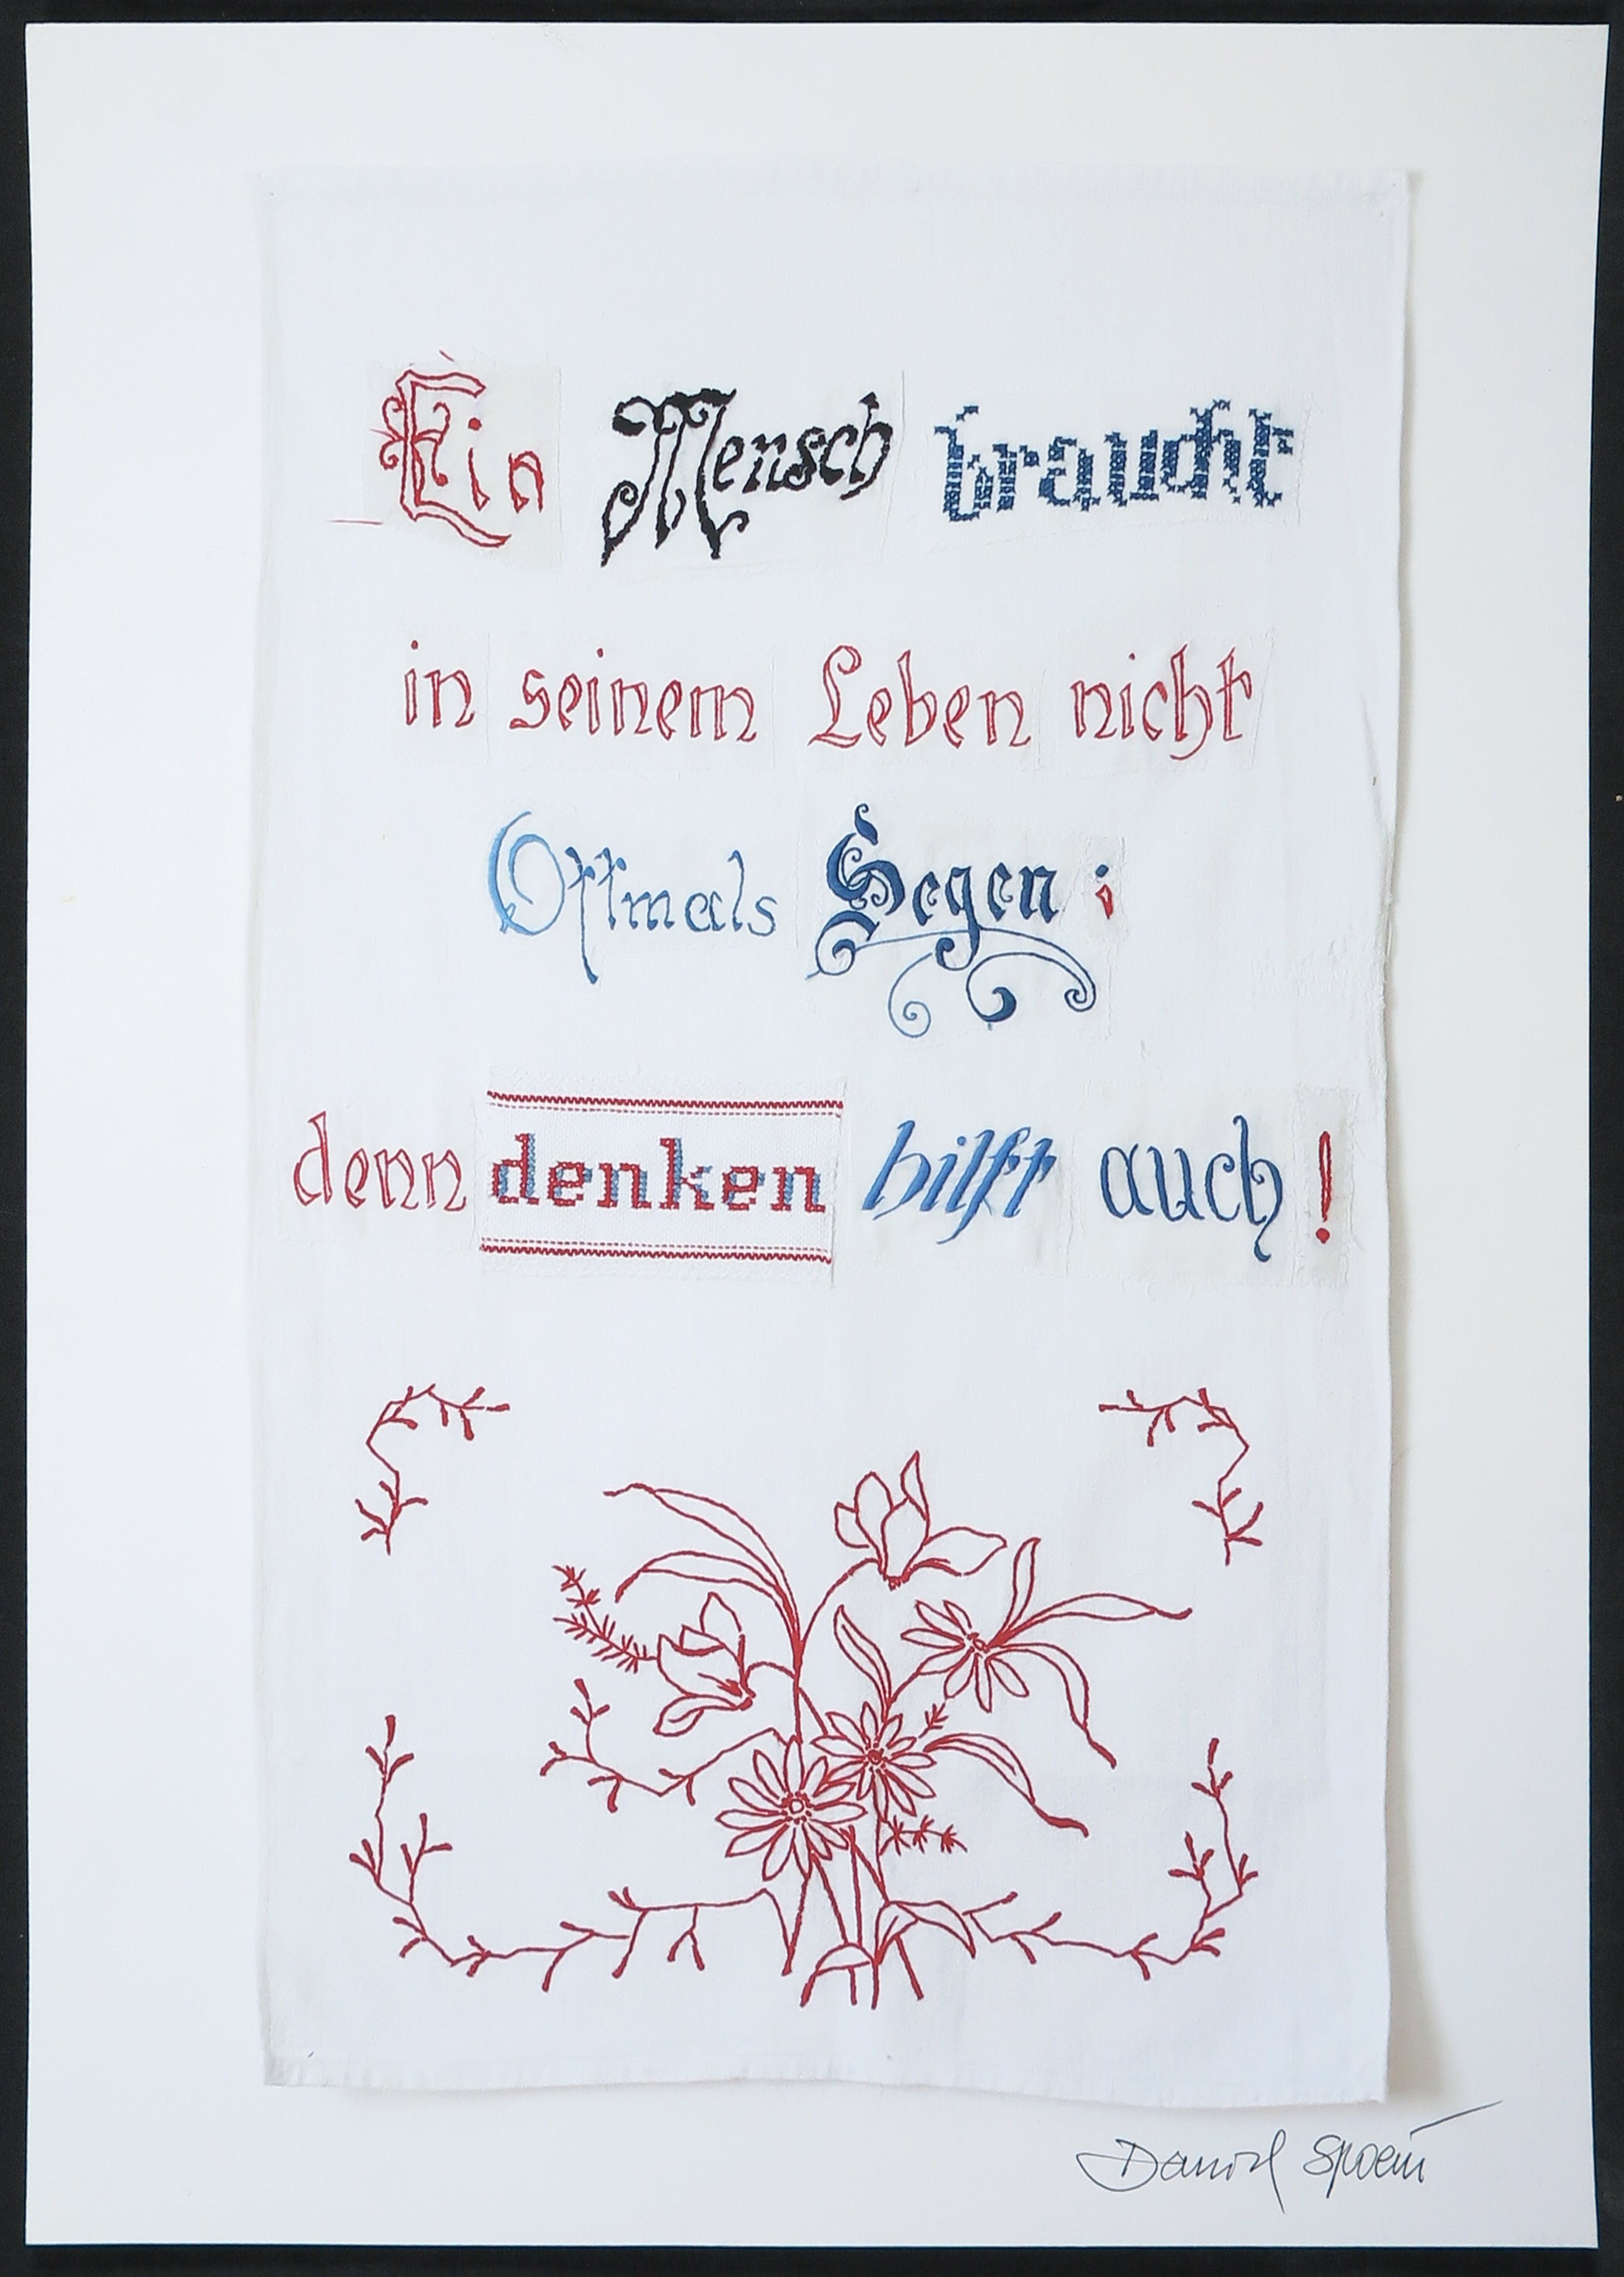 Ein Mensch braucht
in seinem Leben nicht
Oftmals Segen ;
denn denken hilft auch !
Daniel Spoerri